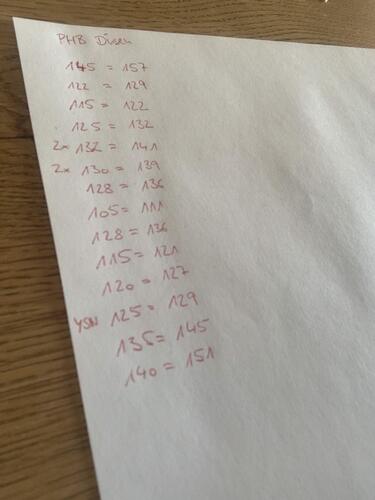 PHB Düsen
145 = 157
122 = 129
115 = 122
125 = 132
2x 132 = 141
2x 130 = 139
128 = 136
105 = 111
128 = 136
115 = 121
120 = 127
YSN 125 = 129
135 = 145
140 = 151